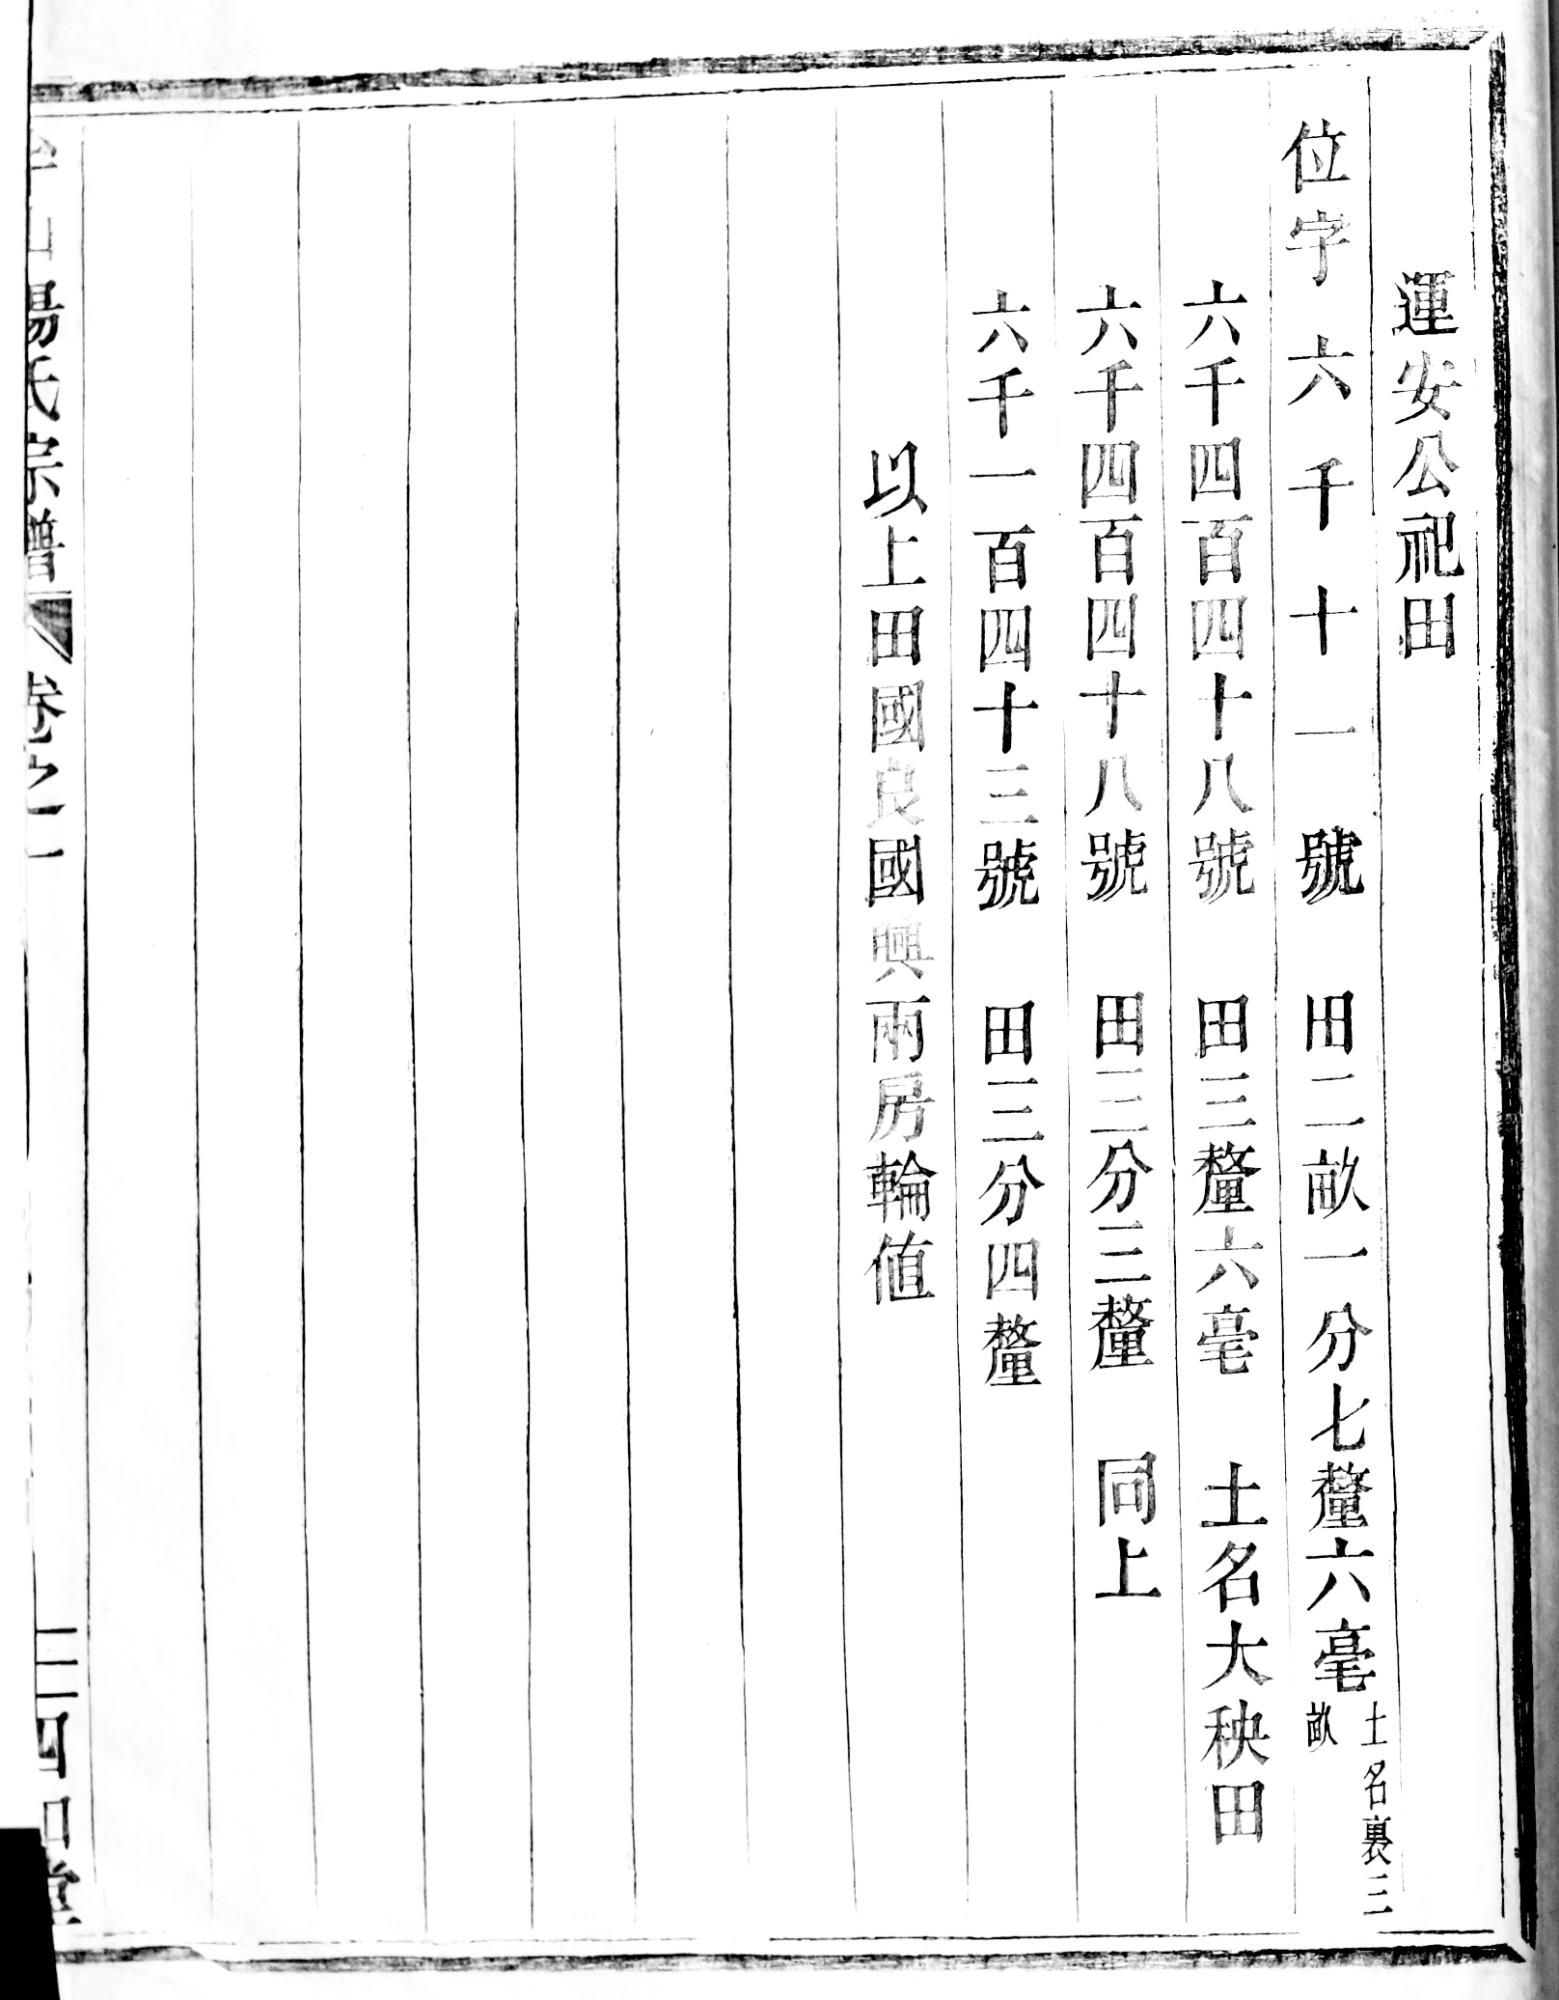 運安公祀田
位字六千十一號 田二畝一分七釐六毫 土名裏三畝
六千四百四十八號 田三釐六毫 土名大秧田
六千四百四十八號 田三分三釐 同上
六千一百四十三號 田三分四釐
以上田國良國興兩房輪值
山楊氏宗譜 卷之一 三 四知堂